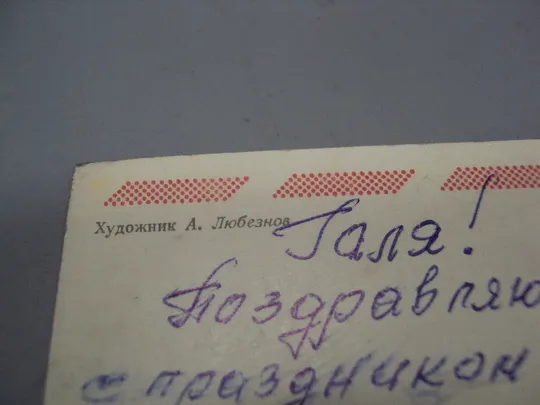 Художник А. Любезнов
Галя!
Поздравляю
с праздником